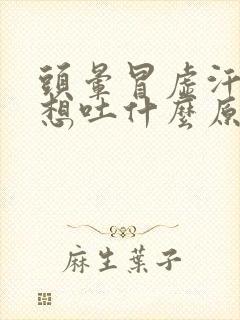 頭暈冒虛汗
想吐什麼原
麻生葉子